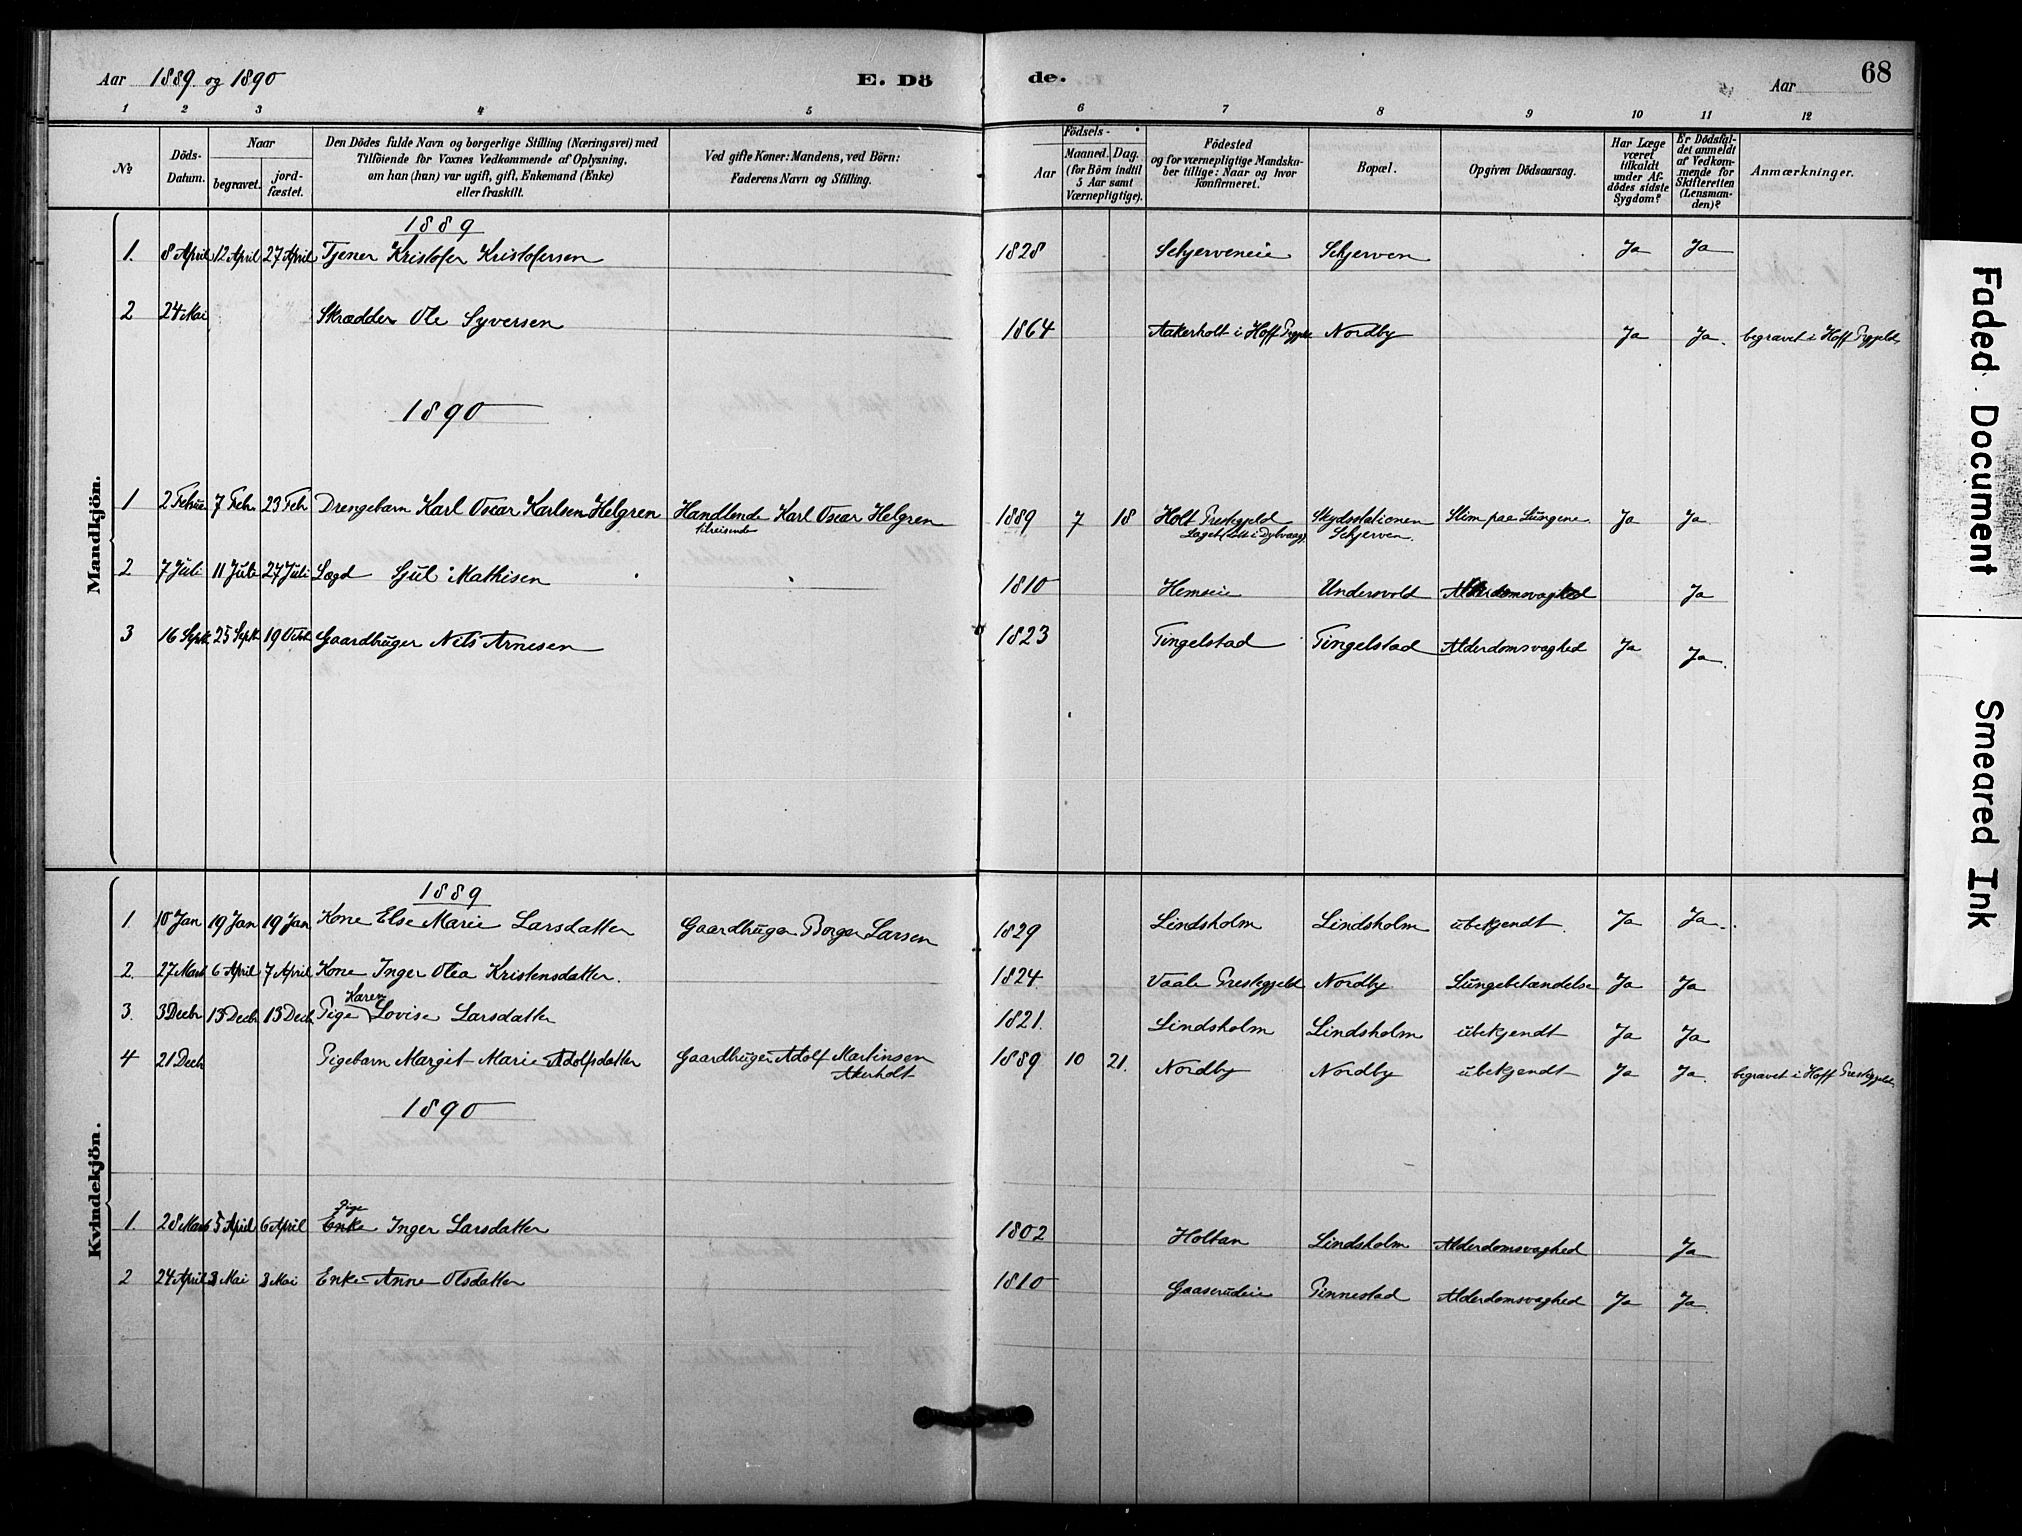 Aar 1889 og 1890 E. Dö de. Aar 68
1 2 3 4 5 6 7 8 9 10 11 12
No Döds-Datum. Naar begravet. jord-fæstet. Den Dödes fulde Navn og borgerlige Stilling (Næringsvei) med Tilföiende for Voxnes Vedkommende af Oplysning, om han (hun) var ugift, gift, Enkemand (Enke) eller fraskilt. Ved gifte Koner: Mandens, ved Börn: Faderens Navn og Stilling. Födsels- Aar Maaned. Dag. (for Börn indtil 5 Aar samt Værnepligtige). Födested og for værnepligtige Mandskaber tillige: Naar og hvor konfirmeret. Bopæl. Opgiven Dödsaarsag. Har Læge været tilkaldt under Afdödes sidste Sygdom? Er Dödsfaldet anmeldt af Vedkommende for Skifteretten (Lensmanden)? Anmærkninger.
Mandkjön.
1889
1. 8 April 12 April 27 April Tjener Kristofer Kristofersen 1828 Schjerveneie Schjerven Ja Ja
2 24 Mai Skrædder Ole Syversen 1864 Aakerholt i Hoff Prgjeld Nordby Ja Ja. begravet i Hoff Prgjeld.
1890
1 2 Februar 7 Febr. 23 Feb Drengebarn Karl Oscar Karlsen Helgren Handlende Karl Oscar Helgren 1889 7 18 Holt Prestegjeld Skydsstationen Slim paa Lungene Ja Ja
tilreisende Laget i Dybvaag) Schjerven.
2 7 Juli 11 Juli 27 Juli Lægd Sjul Mathisen 1810 Hemseie Undersvold Alderdomsvaghed Ja
3 16 Septb. 25 Septb. 19 Octob Gaardbruger Nils Arnesen 1823 Tingelstad Tingelstad Alderdomsvaghed Ja Ja.
Kvindekjön.
1889
1. 10 Jan 19 Jan 19 Jan Kone Else Marie Larsdatter Gaardbruger Borger Larsen 1829 Lindsholm Lindsholm ubekjendt. Ja Ja.
2. 27 Marts 6 April 7 April Kone Inger Olea Kristensdatter. 1824 Vaale Prestegjeld Nordby Lungebetændelse Ja Ja
Karen
3. 3 Decbr 13 Decbr 13 Decb. Pige Lovise Larsdatter 1821. Lindsholm Lindsholm ubekjendt Ja Ja
4 21 Decb Pigebarn Margit Marie Adolfsdatter Gaardbruger Adolf Martinsen 1889 10 21. Nordby Nordby ubekjendt Ja Ja. begravet i Hoff Prestegjeld.
Akerholt
1890
Pige
1 28 Marts 5 April 6 April Enke Inger Larsdatter 1802 Holtan Lindsholm Alderdomsvaghed Ja
2 24 April 3 Mai 3 Mai Enke Anne Olsdatter 1810 Gaaserudeie Pinnestad Alderdomsvaghed Ja Ja.
Faded Document
Smeared Ink